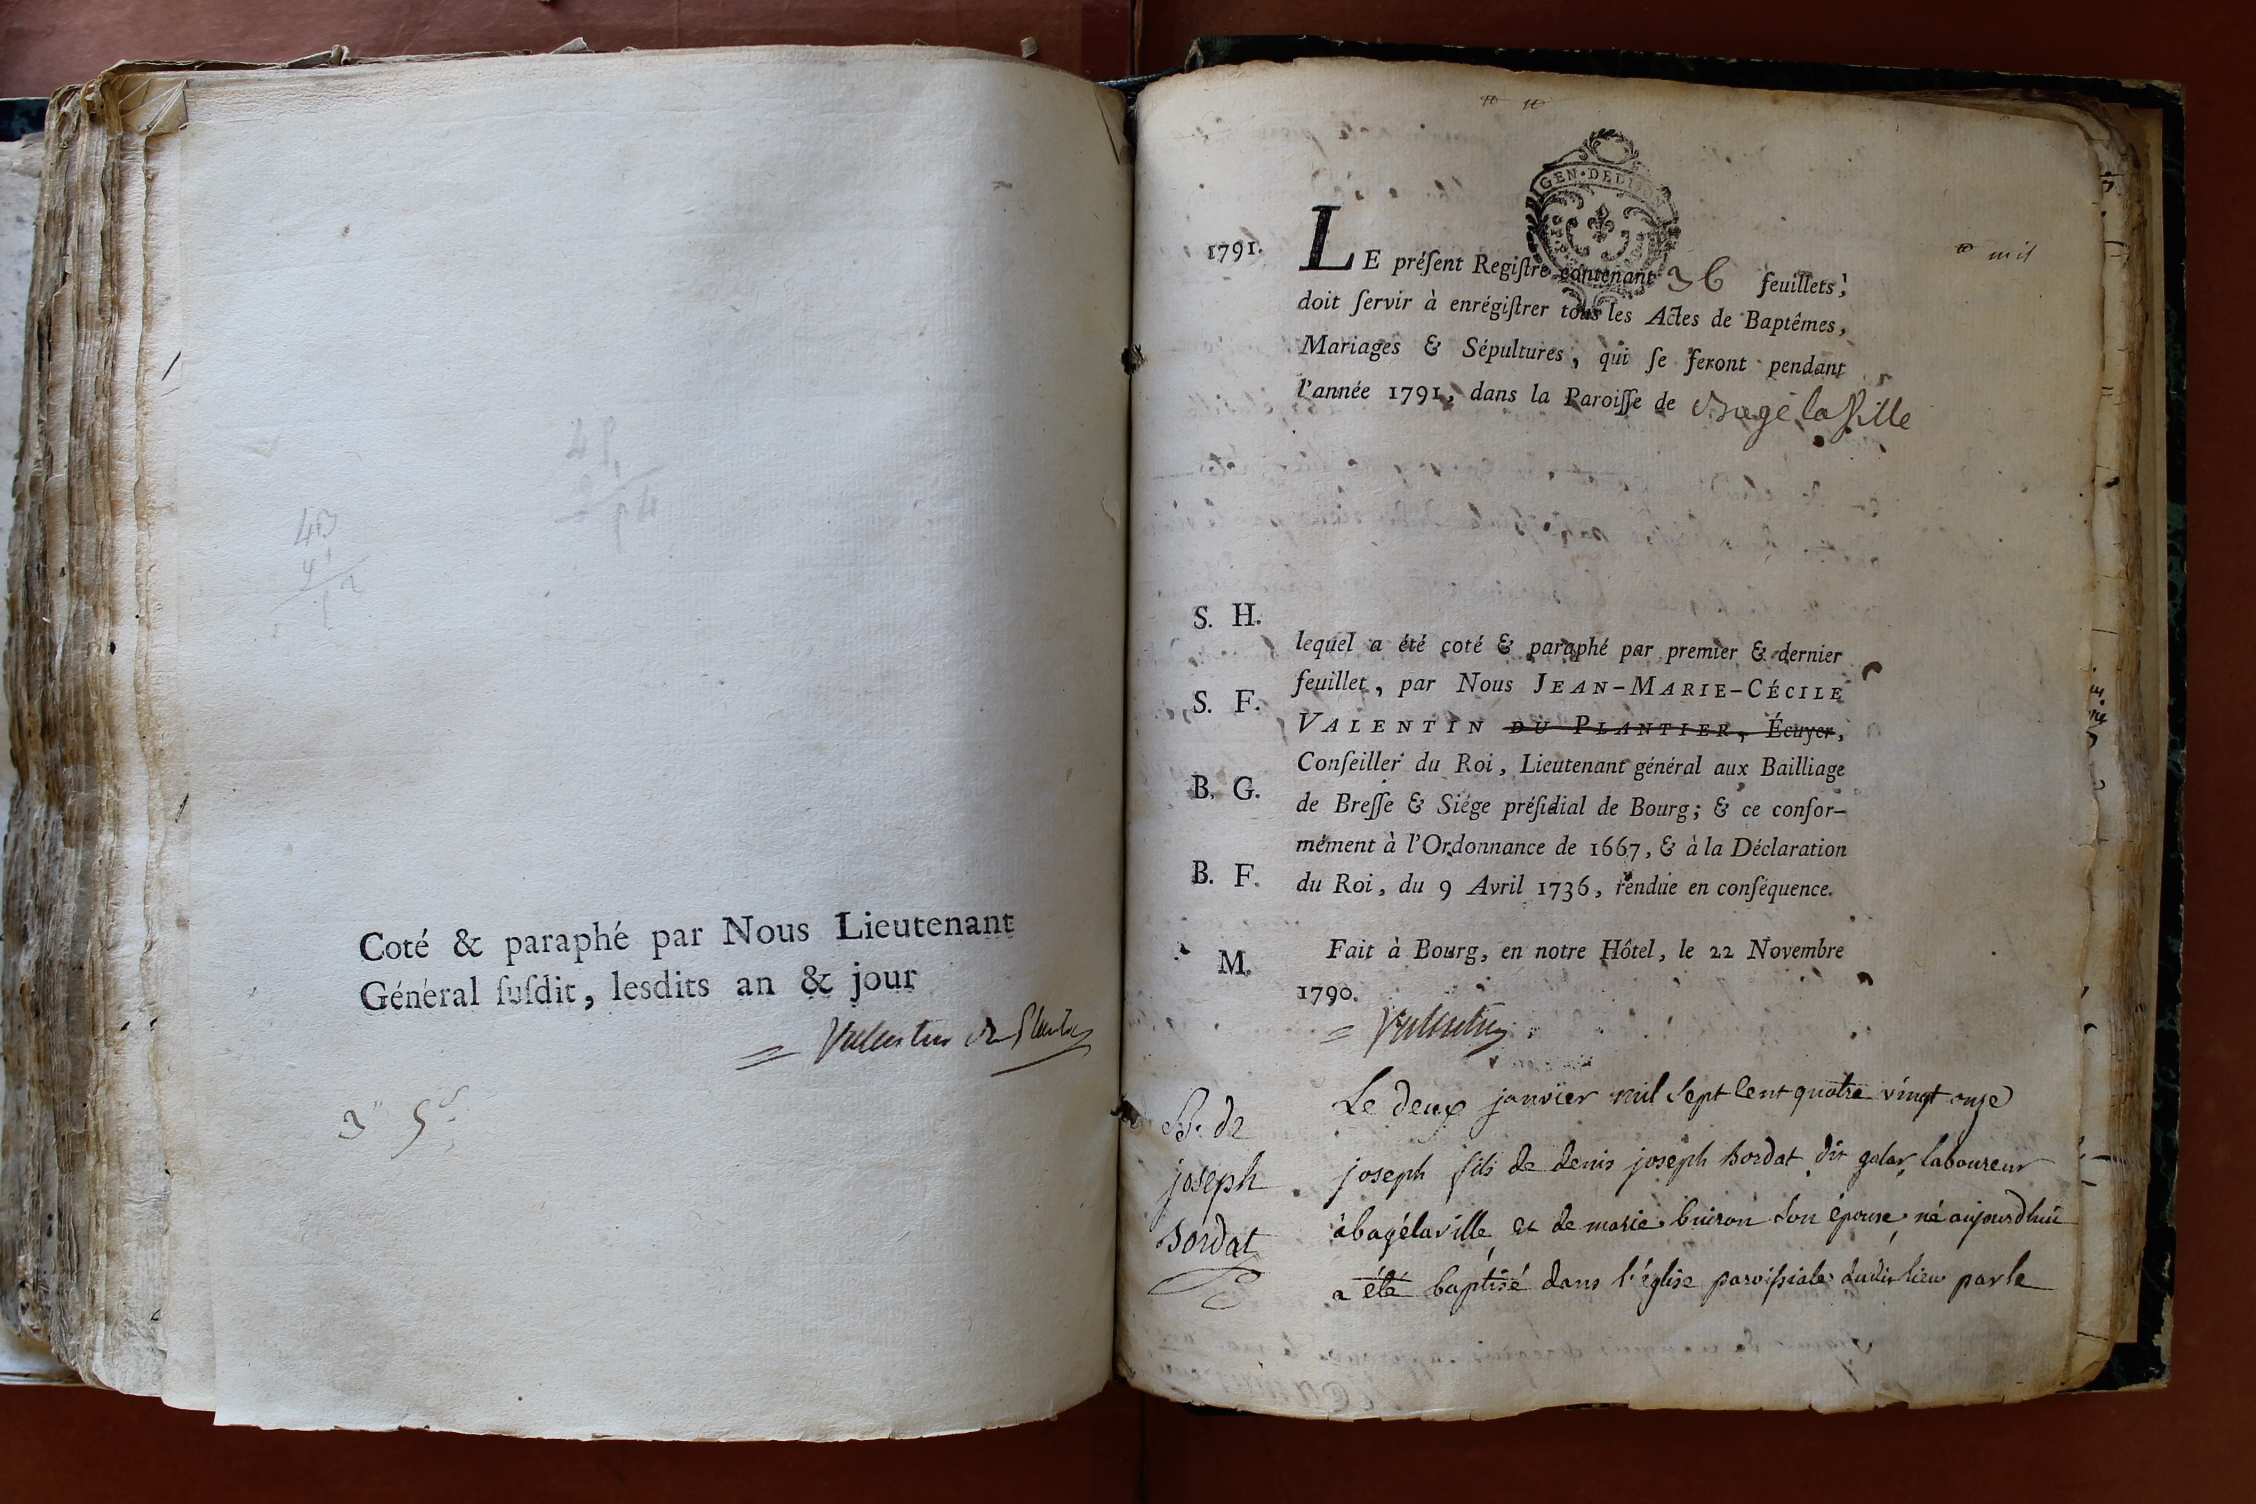 Coté & paraphé par Nous Lieutenant
Général ſuſdit, lesdits an & jour
Valentin du Plantier
GEN · DE
1791.
LE préſent Regiſtre contenant 36 feuillets,
doit ſervir à enrégiſtrer tous les Actes de Baptêmes,
Mariages & Sépultures, qui ſe feront pendant
l'année 1791, dans la Paroiſſe de Bagé la Ville
S. H.
S. F.
B. G.
B. F.
M.
lequel a été coté & paraphé par premier & dernier
feuillet, par Nous JEAN-MARIE-CÉCILE
VALENTIN DU PLANTIER, Écuyer,
Conſeiller du Roi, Lieutenant général aux Bailliage
de Breſſe & Siége préſidial de Bourg; & ce confor-
mément à l'Ordonnance de 1667, & à la Déclaration
du Roi, du 9 Avril 1736, rendue en conſéquence.
Fait à Bourg, en notre Hôtel, le 22 Novembre
1790.
Valentin
B. de
joseph
Bordat
Le deux janvier mil sept cent quatre vingt onze
joseph fils de denis joseph Bordat dit galar laboureur
à bagélaville et de marie buiron son épouse, né aujourdhui
a été baptisé dans l'église paroissiale dudit lieu par le